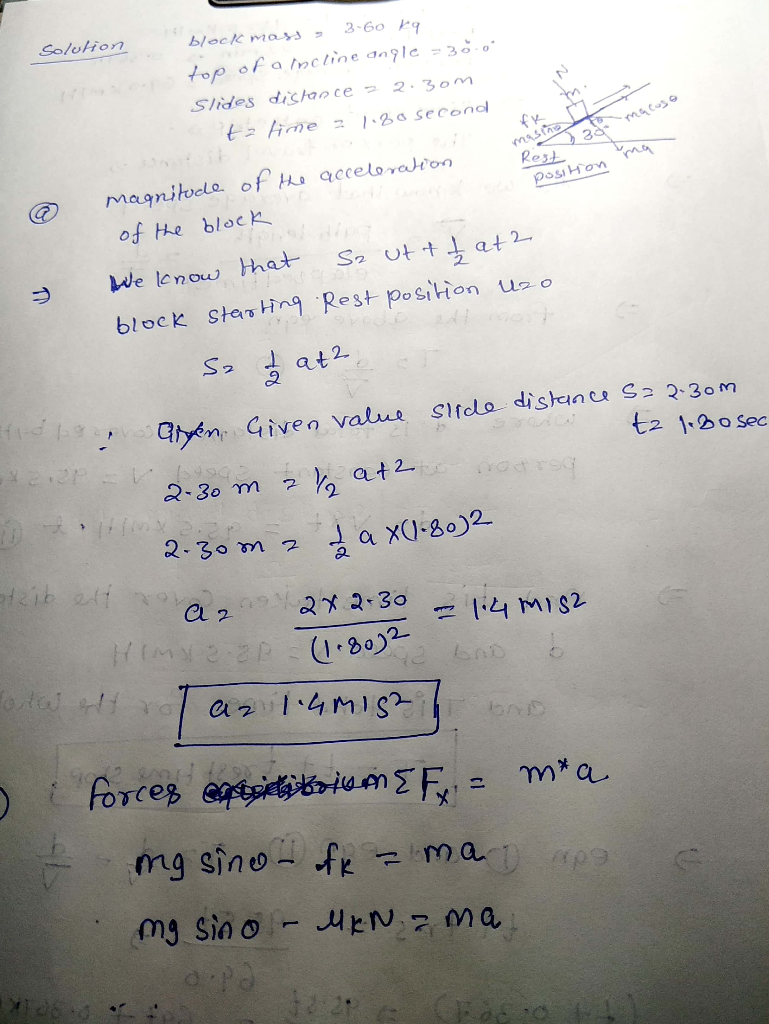 Solution
block mass = 3.60 kg
top of a Incline angle = 30.0°
Slides distance = 2.30m
t = time = 1.80 second
N
m
fk
masino
30°
macoso
ma
Rest
position
(a) magnitude of the acceleration
of the block
⇒ We know that S = ut + 1/2 at2
block starting Rest position u=0
S = 1/2 at2
∴ Given value slide distance S = 2.30m
t = 1.80 sec
2.30 m = 1/2 at2
2.30 m = 1/2 a x(1.80)2
a = 2x2.30/(1.80)2 = 1.4 m/s2
a = 1.4 m/s2
forces ΣFx = m*a
mg sinθ - fk = ma
mg sinθ - μkN = ma